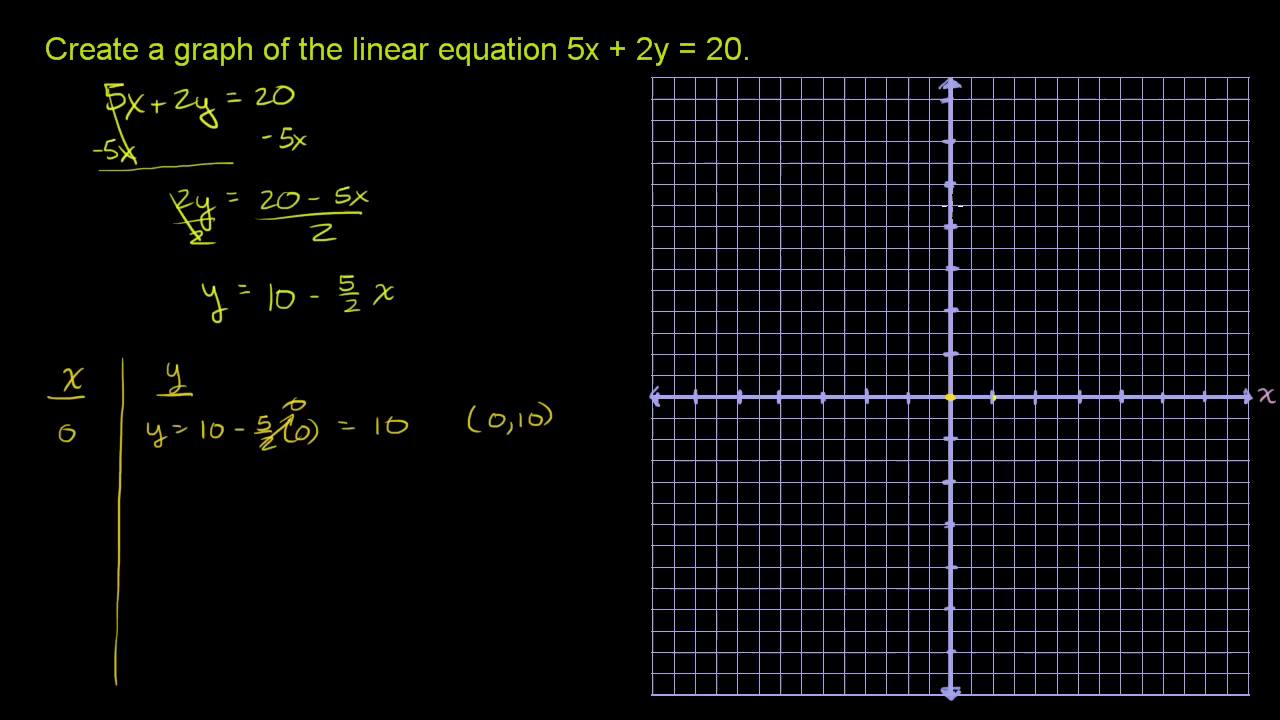 Create a graph of the linear equation 5x + 2y = 20.
5x + 2y = 20
-5x -5x
2y = 20 - 5x
2 2
y = 10 - 5/2 x
x y
0 y = 10 - 5/2 (0) 0 = 10 (0,10)
x